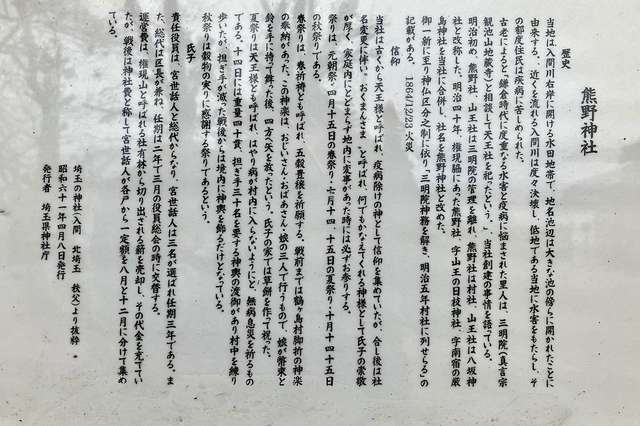 熊野神社
歴史
当地は入間川右岸に開ける水田地帯で、地名池辺は大きな池の傍らに開かれたことに
由来する。近くを流れる入間川は度々決壊し、低地である当地に水害をもたらし、そ
の都度住民は疾病に苦しめられた。
古老によると、鎌倉時代に度重なる水害と疫病に悩まされた里人は、三明院(真言宗
観池山地蔵寺)と相談して天王社を祀ったという。」当社創建の事情を語っている。
明治初め、熊野社、山王社は三明院の管理を離れ、熊野社は村社、山王社は八坂神
社と改称した。明治四十年、権現脇にあった熊野社、字山王の日枝神社、字南宿の厳
島神社を当社に合併し、社名を熊野神社と改めた。
御一新に至り神仏区分之制に依り「三明院神務を解き、明治五年村社に列せらる」の
記載がある。 1864/12/23 火災
信仰
当社は古くから天王様と呼ばれ、疫病除けの神として信仰を集めていたが、合し後は社
名変更に伴い、おくまんさま、と呼ばれ、何でもかなえてくれる神様として氏子の崇敬
が厚く、家庭内にとどまらず地内に変事があった時には必ずお参りする。
祭りは、元朝祭・四月十五日の春祭り・七月十四、十五日の夏祭り・十月十四十五日
の秋祭りである。
春祭りは、春祈祷とも呼ばれ、五穀豊穣を祈願する。戦前までは鶴ヶ島村脚折の神楽
の奉納があった。この神楽は、おじいさん・おばあさん・娘の三人で行うもので、娘が幣束と
鈴を手に持って舞った後、四方へ矢を放ったという。氏子の家では草餅を作って祝った。
夏祭りは天王様とも呼ばれ、はやり病が村内に入らないようにと、無病息災を祈るもの
である。十四日には重量四十貫、担ぎ手三十名を要する神輿の渡御があり村中を練り
歩いたが、担ぎ手が減った戦後からは境内に神輿を飾るだけとなっている。
秋祭りは穀物の実りに感謝する祭りであるという。
氏子
責任役員は、宮世話人と総代からなり、宮世話人は三名が選ばれ任期三年である。ま
た、総代は区長が兼ね、任期は二年で三月の役員総会の時に交替する。
運営費は、権現山と呼ばれる社有林から切り出される薪を売却し、その代金を充ててい
たが、戦後は神社費と称して宮世話人が各戸から一定額を八月と十二月に分けて集め
ている。
埼玉の神社(入間 北埼玉 秩父)より抜粋
昭和六十一年四月八日発行
発行者 埼玉県神社庁